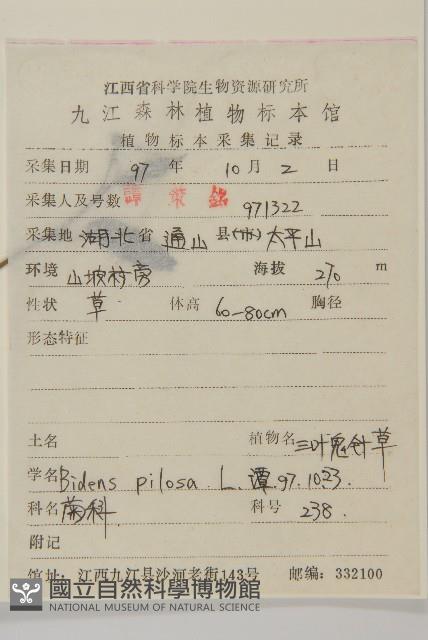 江西省科学院生物资源研究所
九江森林植物标本馆
植物标本采集记录
采集日期 97 年 10 月 2 日
采集人及号数 譚策銘 971322
采集地 湖北 省 通山 县(市) 太平山
环境 山坡村旁 海拔 270 m
性状 草 体高 60-80cm 胸径
形态特征
土名 植物名 三叶鬼针草
学名 Bidens pilosa L. 潭.97.10.23.
科名 菊科 科号 238.
附记
馆址: 江西九江县沙河老街143号 邮编: 332100
國立自然科學博物館
NATIONAL MUSEUM OF NATURAL SCIENCE